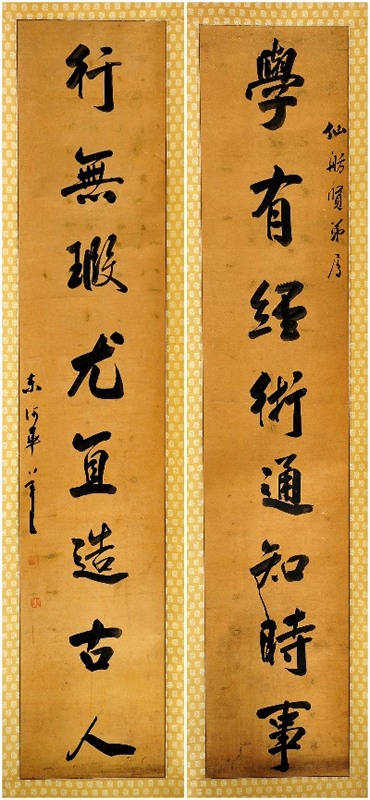 仙舫賢弟屬
學有經術通知時事
行無瑕尤直造古人